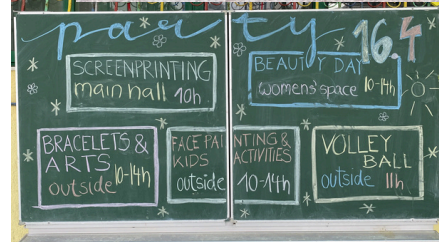 party 16.4
SCREENPRINTING
main hall 10h
BEAUTY DAY
womens' space 10-14h
BRACELETS &
ARTS
outside 10-14h
FACE PAINTING &
KIDS ACTIVITIES
outside 10-14h
VOLLEY
BALL
outside 11h